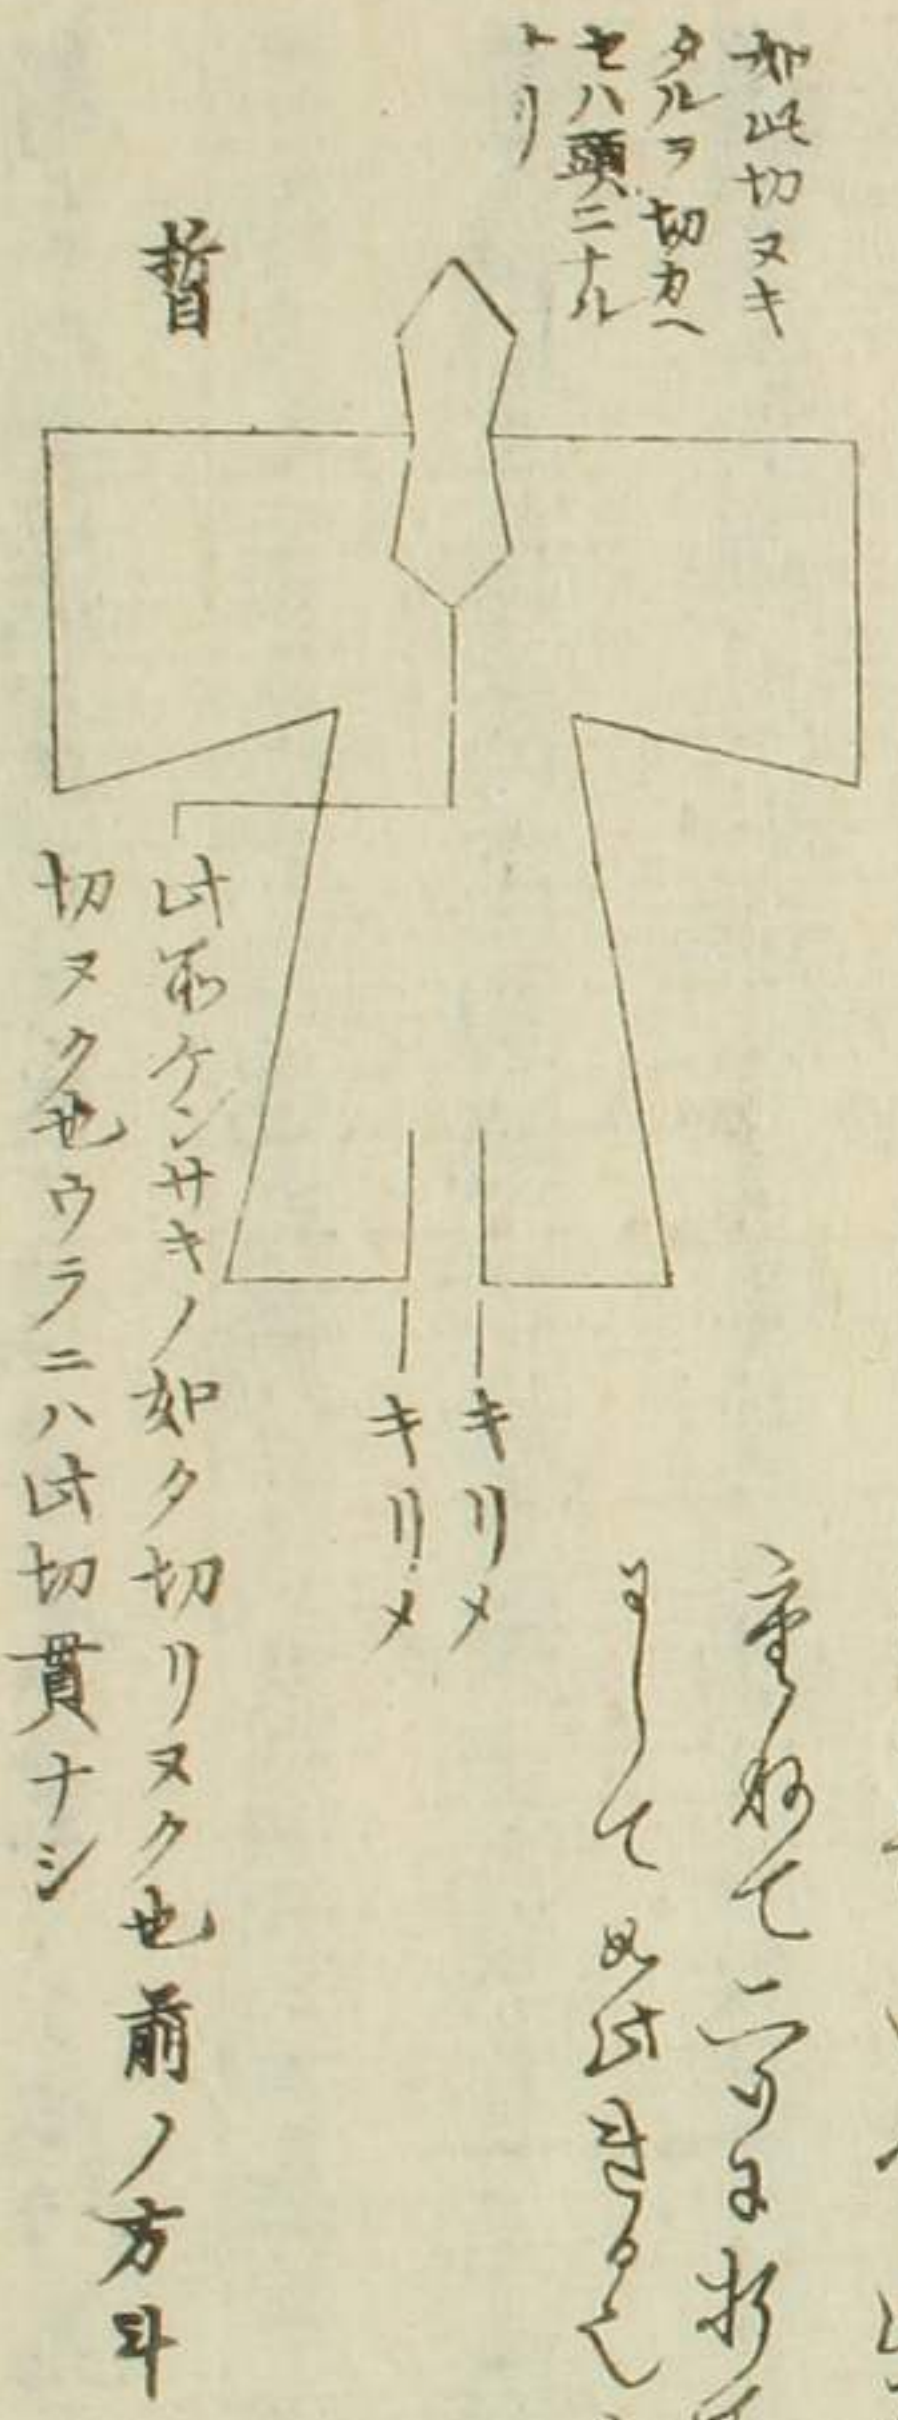 如此切ヌキ
タルヲ切カヘ
セハ頭ニナル
トリ
重ねて二つに折
にして如此
キリメ
キリメ
此所ケンサキノ如ク切リヌク也前ノ方斗
切ヌク也ウラニハ此切貫ナシ